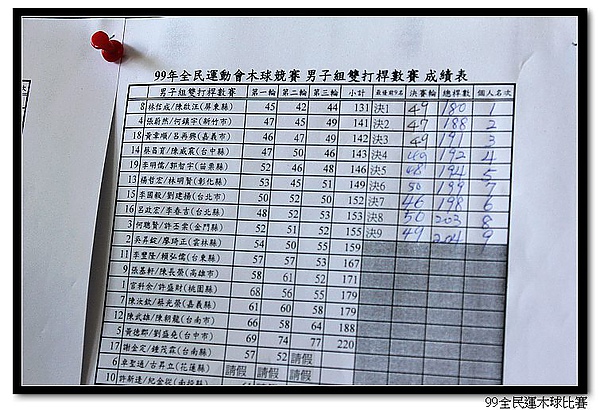 99年全民運動會木球競賽 男子組雙打桿數賽 成績表
男子組雙打桿數賽 第一輪 第二輪 第三輪 小計 最優前9名 決賽輪 總桿數 個人名次
8 林信成/陳啟江(屏東縣) 45 42 44 131 決1 49 180 1
4 張蔚然/何鎮宇(新竹市) 47 45 49 141 決2 47 188 2
18 黃韋順/呂再興(嘉義市) 46 47 49 142 決3 49 191 3
14 蔡昌育/陳威霖(台中縣) 47 50 46 143 決4 49 192 4
19 李明儒/郭智宇(苗栗縣) 52 46 48 146 決5 48 194 5
13 楊哲宏/林明賢(彰化縣) 53 45 51 149 決6 50 199 7
15 李國毅/劉建楊(台北市) 50 52 50 152 決7 46 198 6
16 呂政宏/李春吉(台北縣) 48 52 53 153 決8 50 203 8
3 何聰賢/許丕棠(金門縣) 52 51 52 155 決9 49 204 9
2 吳昇錠/廖琦正(雲林縣) 54 50 55 159
11 李豐隆/賴弘儒(台東縣) 57 57 53 167
9 張基軒/陳長榮(高雄市) 58 61 52 171
1 官科余/許盛財(桃園縣) 68 56 55 179
7 陳汝欽/蔡光榮(嘉義縣) 61 60 58 179
12 陳武雄/陳朝龍(台南市) 60 64 64 188
5 黃德郡/劉盛堯(台中市) 69 74 77 220
17 謝金定/鍾茂霖(台南縣) 57 52 請假
6 卓聖通/古昇立(花蓮縣) 請假 請假 請假
10 許新達/紀金從(南投縣) 請假 請假 請假
99全民運木球比賽